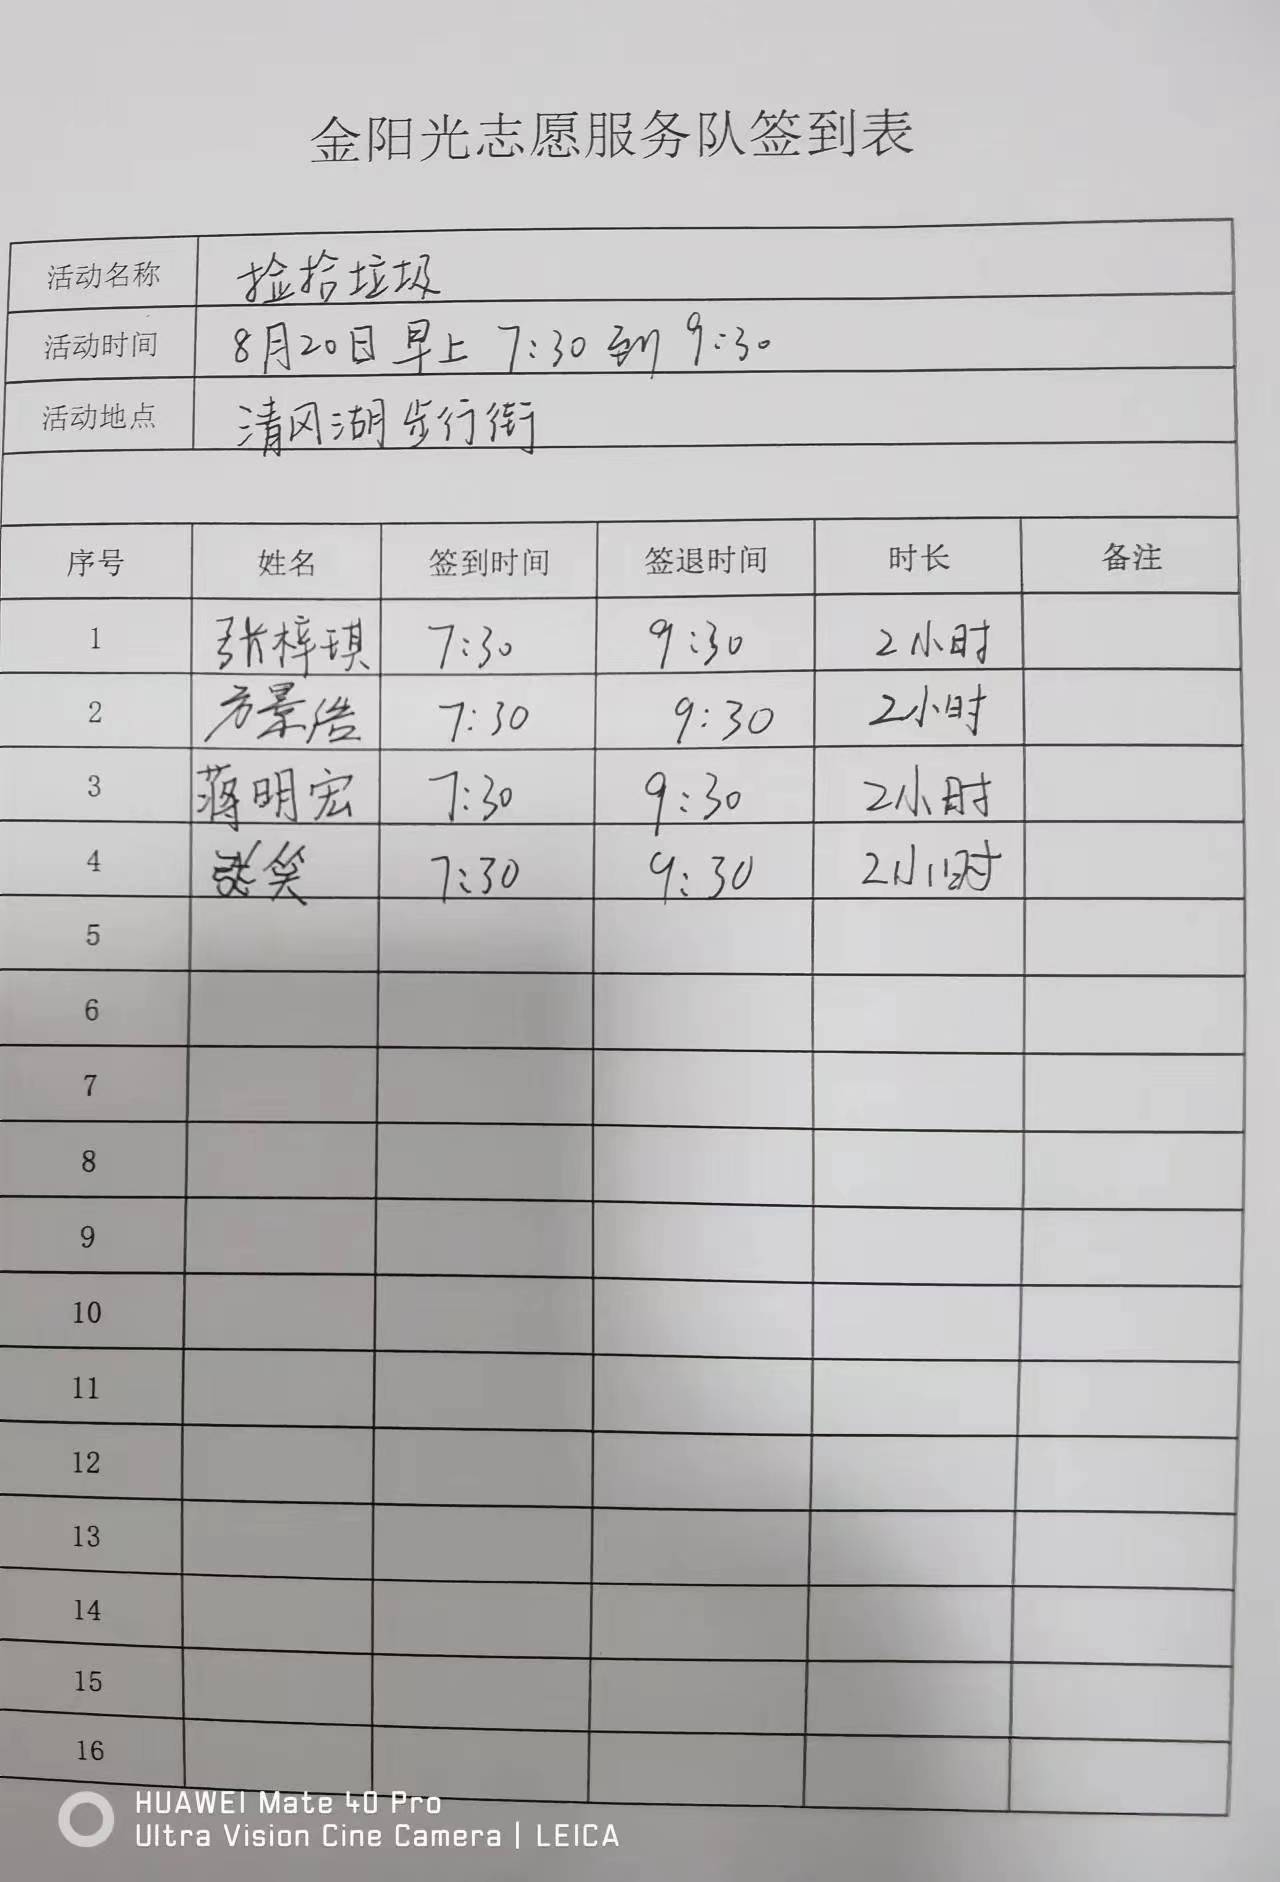 金阳光志愿服务队签到表
活动名称 捡拾垃圾
活动时间 8月20日早上 7:30到 9:30
活动地点 清风湖步行街
序号 姓名 签到时间 签退时间 时长 备注
1 张梓琪 7:30 9:30 2小时
2 方景浩 7:30 9:30 2小时
3 蒋明宏 7:30 9:30 2小时
4 笑 7:30 9:30 2小时
5
6
7
8
9
10
11
12
13
14
15
16
HUAWEI Mate 40 Pro
Ultra Vision Cine Camera | LEICA